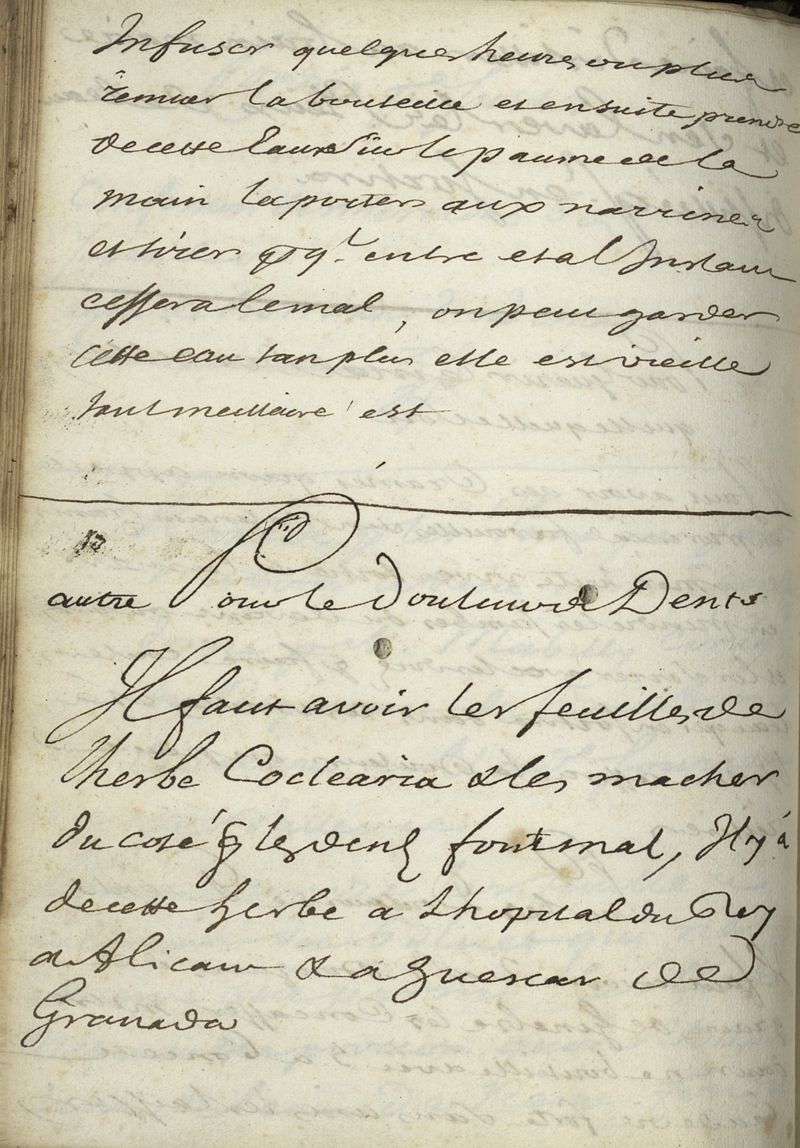 Infuser quelques heures ou plus
remuer la bouteille et ensuite prendre
de cette Eau Sur le paume de la
main la porter aux narrines
et tirer qu'il entre et a l Instant
cessera le mal, on peut garder
cette eau tan plus elle est vieille
tant meilleure est
autre Pour le Douleur de Dents
Il faut avoir les feuilles de
lherbe Coclearia & les macher
du costé q les dens font mal, Il y á
de cette herbe a Lhopital du Rey
a Alicant & a guescar de
Granada